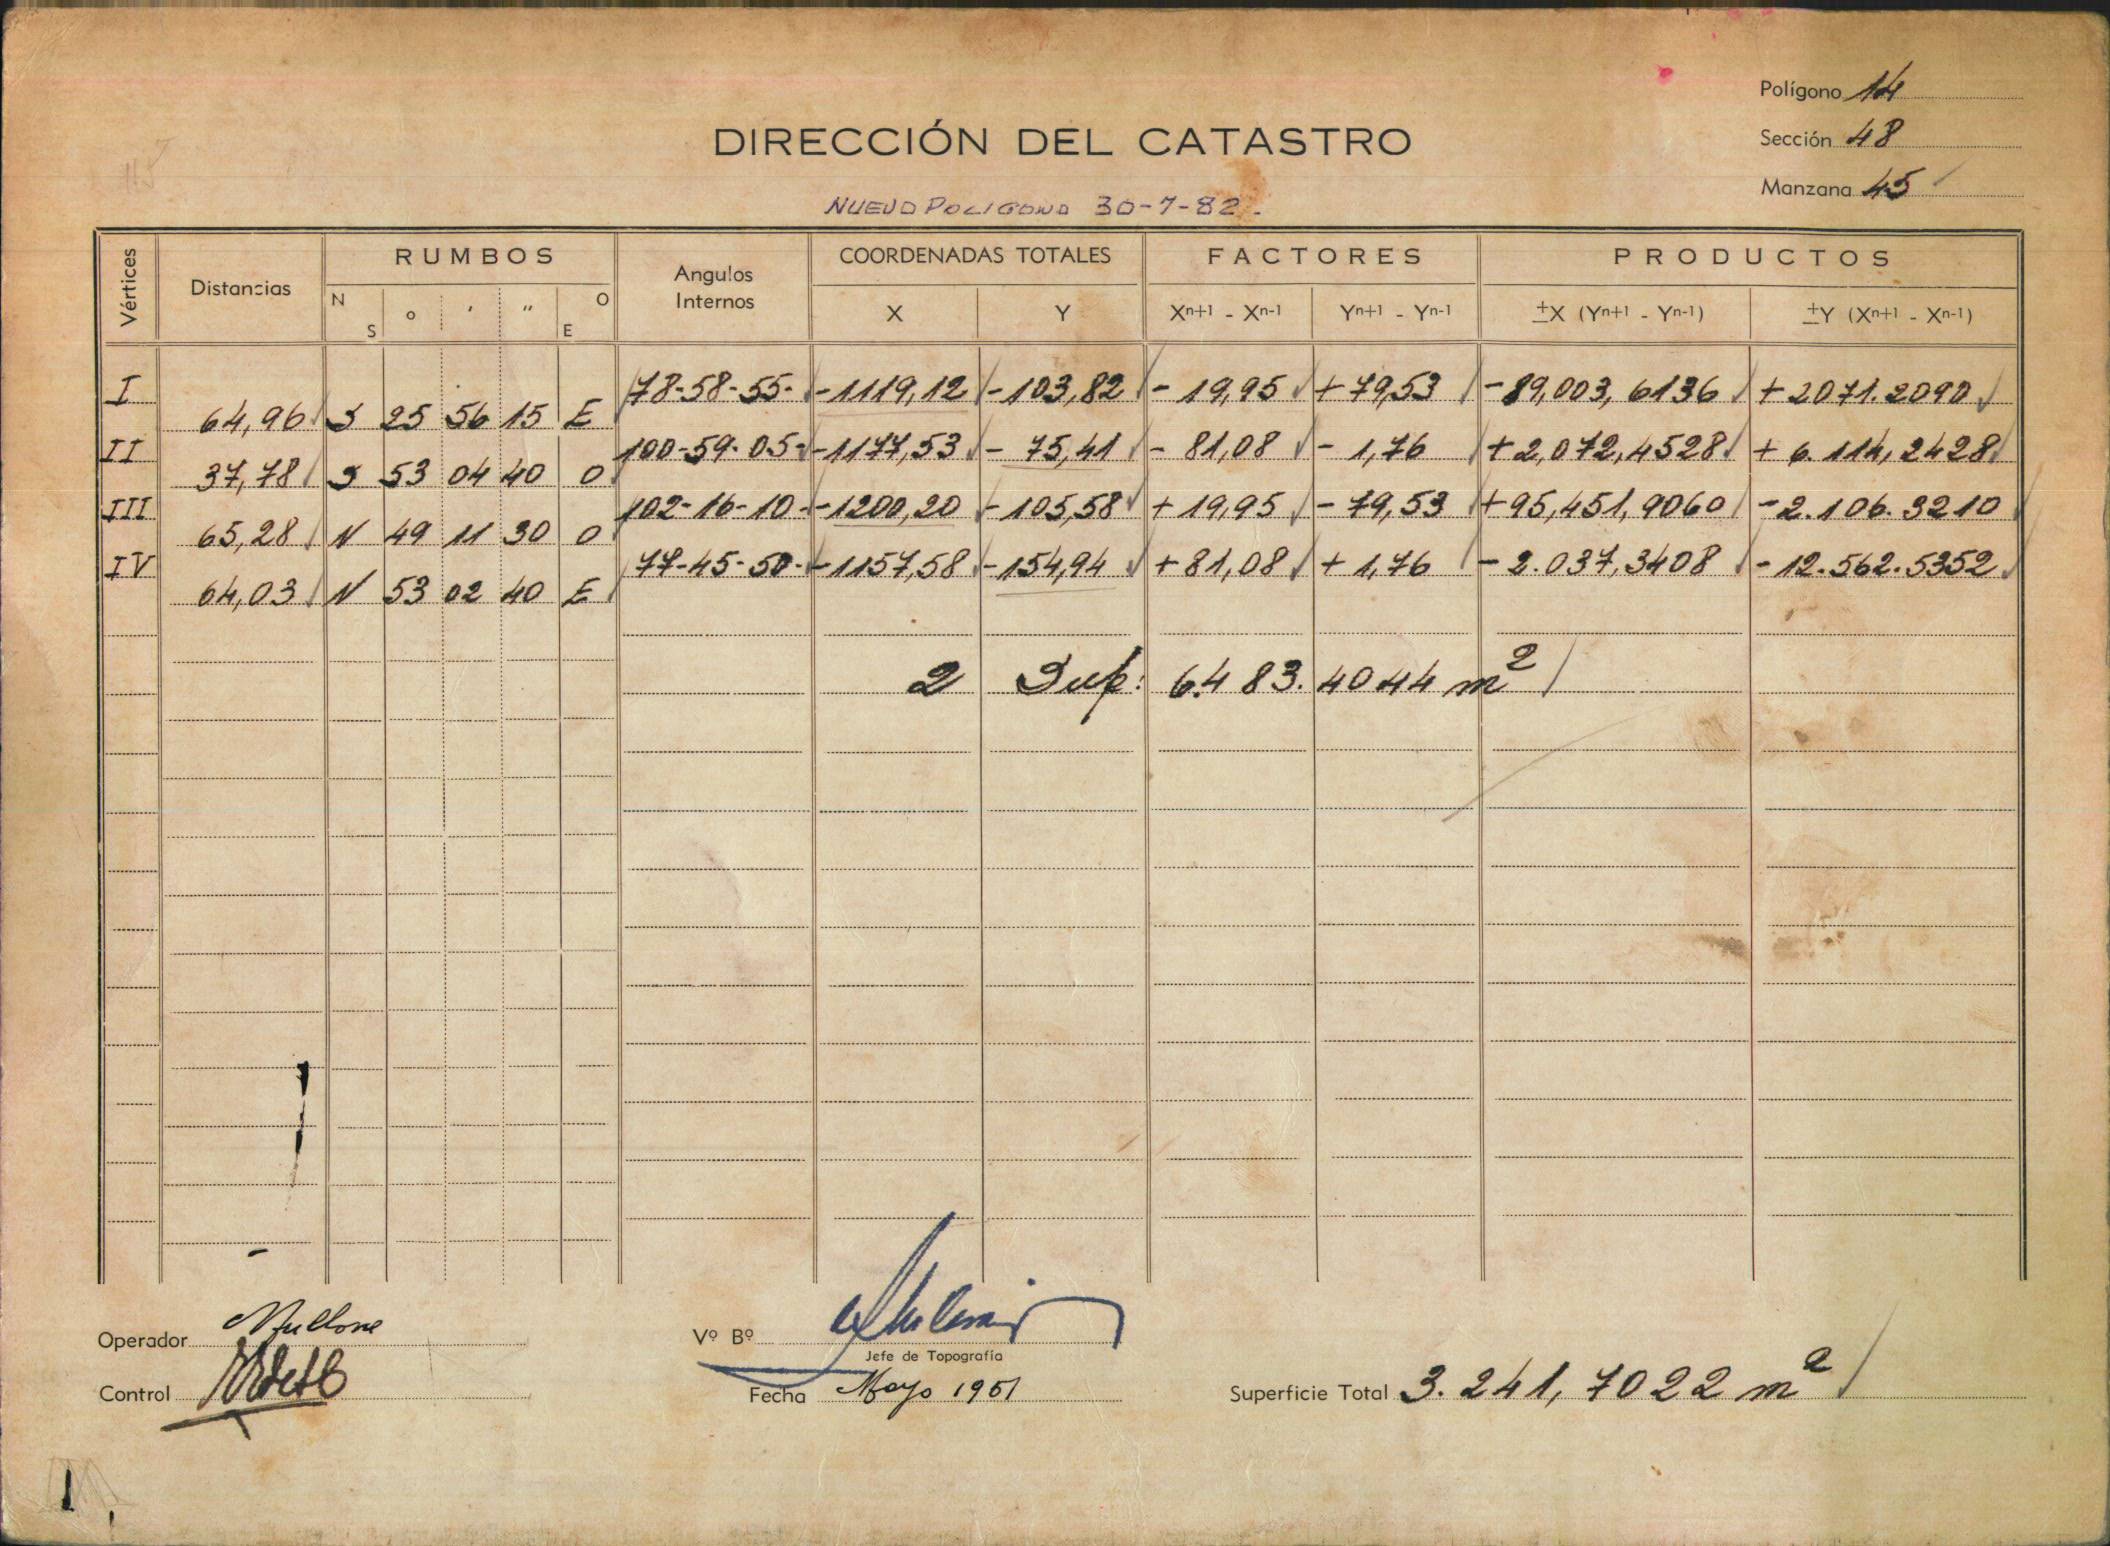 Polígono 14
DIRECCIÓN DEL CATASTRO
Sección 48
Manzana 45
NUEVO POLIGONO 30-7-82.-
Vértices Distancias RUMBOS Angulos Internos COORDENADAS TOTALES FACTORES PRODUCTOS
N S ° ' " O E X Y Xn+1 - Xn-1 Yn+1 - Yn-1 ±X (Yn+1 - Yn-1) ±Y (Xn+1 - Xn-1)
I 78-58-55- -1119,12 -103,82 - 19,95 +79,53 -89,003,6136 +2071.2090
64,96 S 25 56 15 E
II 100-59-05- -1177,53 - 75,41 - 81,08 - 1,76 +2,072,4528 + 6.114,2428
37,78 S 53 04 40 O
III 102-16-10- -1200,20 -105,58 + 19,95 - 79,53 +95,451,9060 -2.106.3210
65,28 N 49 11 30 O
IV 77-45-50- -1157,58 -154,94 +81,08 + 1,76 - 2.037,3408 -12.562.5352
64,03 N 53 02 40 E
2 Sup: 6.483.4044 m²
Operador
Vº Bº
Jefe de Topografía
Control
Fecha Mayo 1961
Superficie Total 3.241,7022 m²